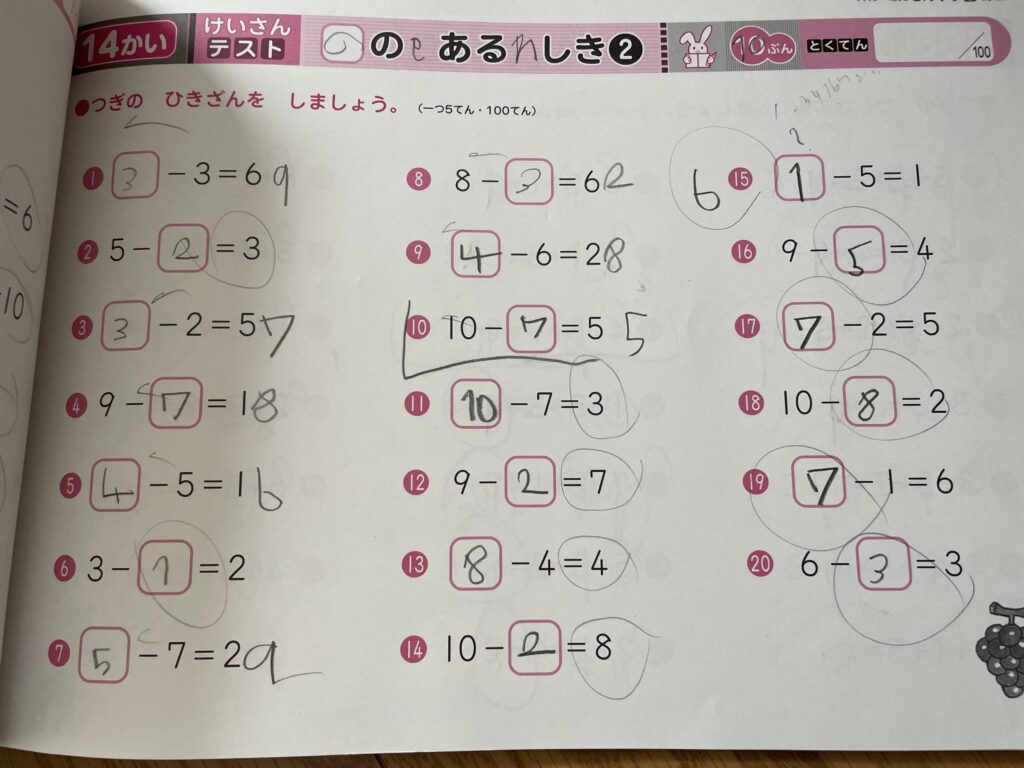 14かい けいさんテスト □の ある しき❷ 10ぷん とくてん /100
●つぎの ひきざんを しましょう。 (一つ5てん・100てん)
1 3 −3=6 9
2 5− 2 =3
3 3 −2=5 7
4 9− 7 =1 8
5 4 −5=1 6
6 3− 1 =2
7 5 −7=2 9
8 8− 3 =6 2
9 4 −6=2 8
10 10− 7 =5 5
11 10 −7=3
12 9− 2 =7
13 8 −4=4
14 10− 2 =8
6 15 1 −5=1
16 9− 5 =4
17 7 −2=5
18 10− 8 =2
19 7 −1=6
20 6− 3 =3
=6
10